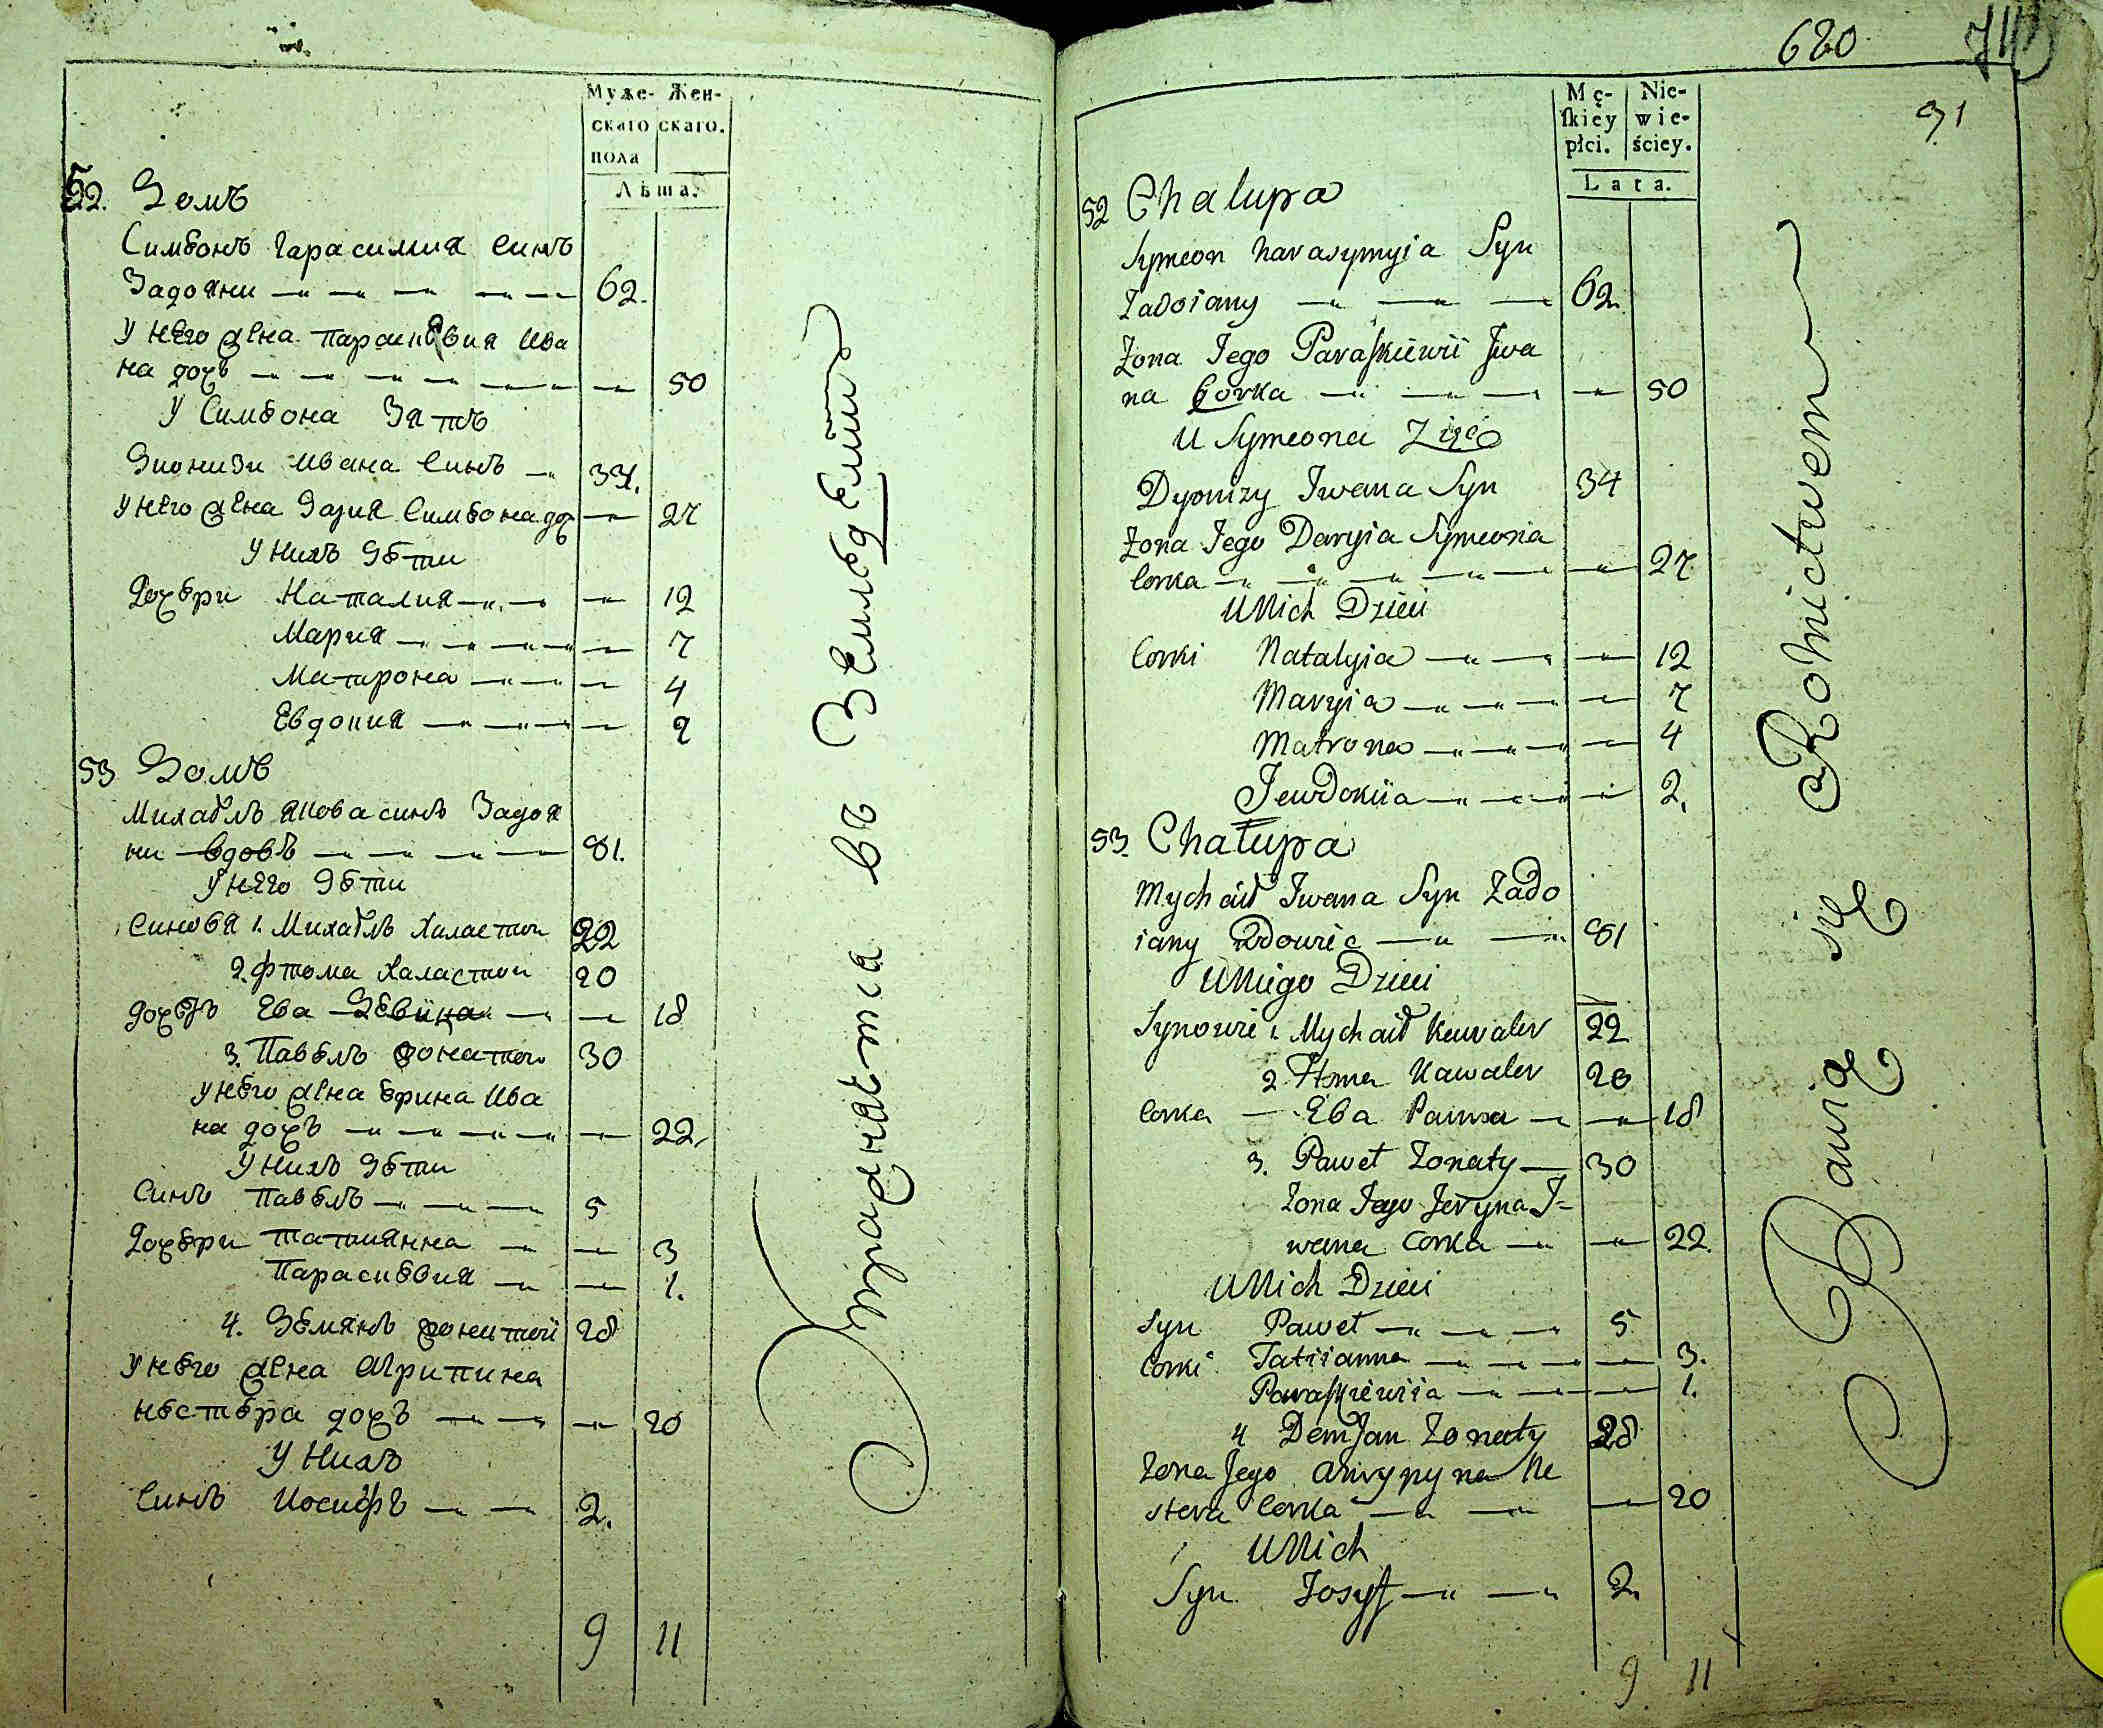 Муже- Жен-
скаго скаго.
пола
Лѣта.
52. Домъ
Симеонъ Гарасимия Синъ
Задояни 62.
У него жена Параскевия Ива
на дочъ 50
У Симеона Зятъ
Дионизи Ивана Синъ 34.
У него жена Дария Симеона доч 27
У нихъ Дети
Дочери Наталия 12
Мария 7
Матрона 4
Евдокия 2
53 Домъ
Михаелъ Якова синъ Задоя
ни вдовъ 81.
У него Дети
Синовя 1. Михаелъ Халастои 22
2. Фтома Халастои 20
дочеръ Ева Девица 18
3. Павелъ Жонатои 30
У него жена Ерина Ива
на дочъ 22.
У нихъ Дети
Синъ Павелъ 5
Дочери Татиянна 3
Парасковия 1.
4. Демянъ жонатой 28
У него жена Агрипина
Нестера дочъ 20
У нихъ
Синъ Иосифъ 2.
9 11
Упражняется въ Земледелии
620
91
Mę- Nie-
skiey wie-
płci. ściey.
Lata.
52 Chalupa
Symeon Harasymyia Syn
Zadoiany 62.
Zona Jego Paraskiewii Jwa
na Corka 50
U Symeona Zięć
Dyonizy Jwana Syn 34
Zona Jego Daryia Symeona
Corka 27
U Nich Dzieci
Corki Natalyia 12
Maryia 7
Matrona 4
Jewdokiia 2.
53. Chałupa
Mychaił Jwana Syn Zado
iany Wdowiec 81
U Niego Dzieci
Synowie 1. Mychaił Kawaler 22
2 Ftoma Kawaler 20
Corka Ева Panna 18
3. Paweł Zonaty 30
Zona Jego Jeryna J-
wana Corka 22.
U Nich Dzieci
Syn Paweł 5
Corki Tatiianna 3.
Paraskiewiia 1.
4 Demjan Zonaty 28
Zona Jego Ahrypyna Ne
stera Corka 20
U Nich
Syn Josyf 2.
9 11
Bawią się Rolnictwem